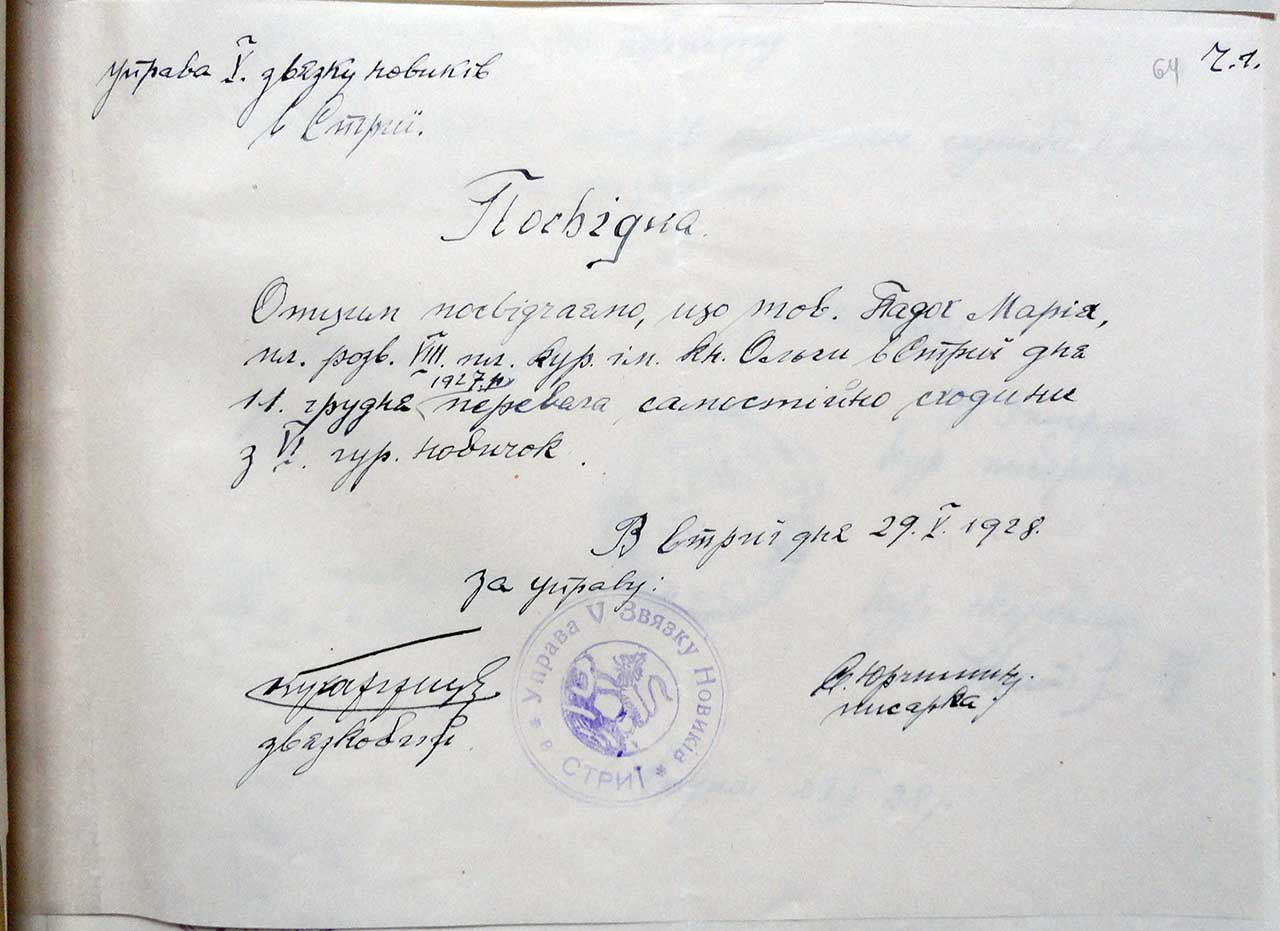 Управа V. звязку новиків
64 Ч.1.
в Стриї.
Посвідка
Отцим посвідчаємо, що тов. Падох Марія,
пл. розв. VIII. пл. кур. ім. кн. Ольги в Стрий дня
1927.р
11. грудня перевела самостійно сходини
з VI. гур. новичок.
В Стрий дня 29.V.1928.
за управу:
Управа V Звязку Новиків
в Стриї
звязковий
С. Юрчишин.
писарка